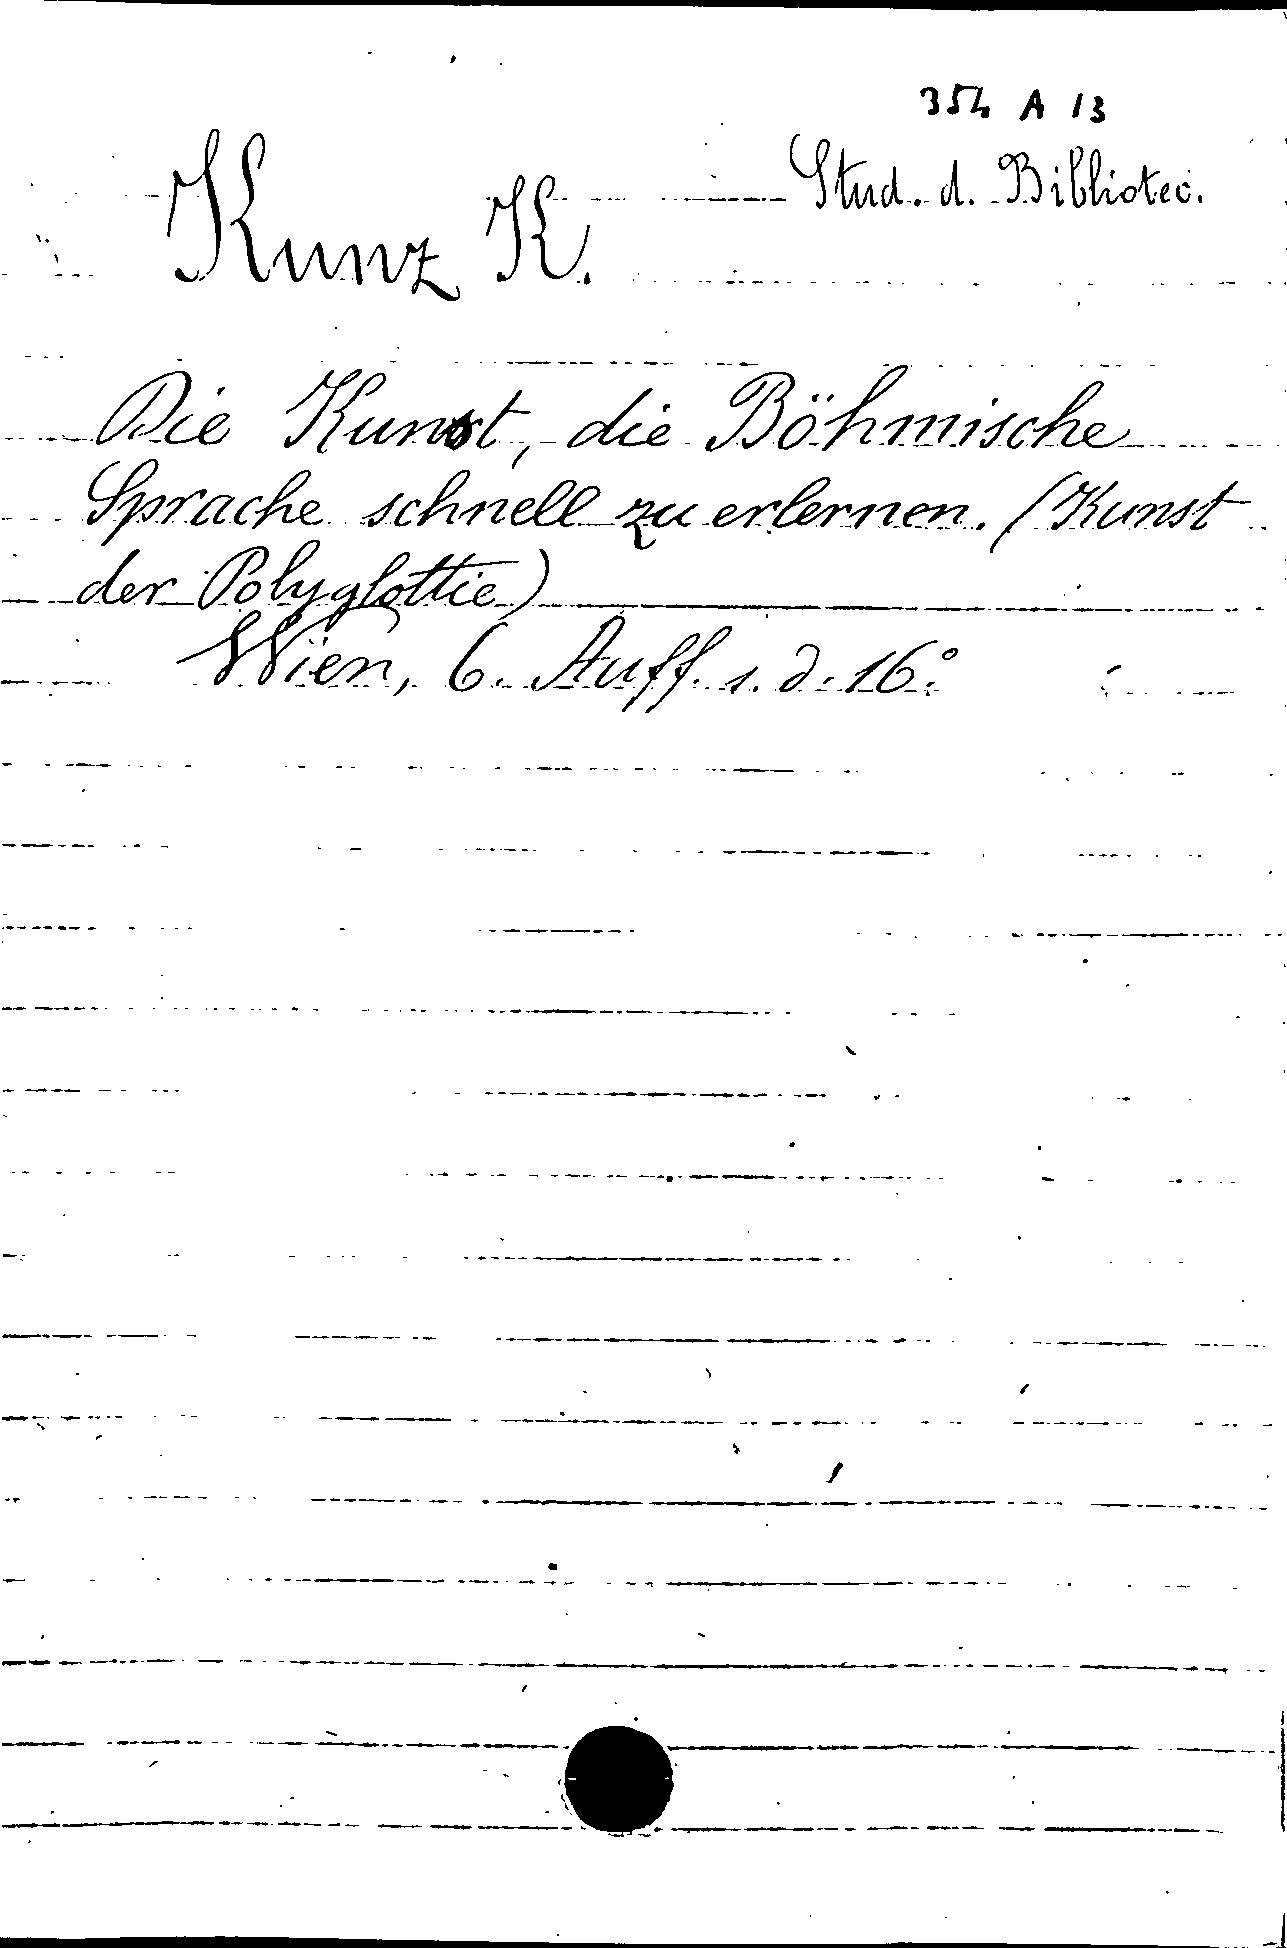 354 A 13
Stud. d. Bibliotec.
Kunz K.
Die Kunst, die Böhmische
Sprache schnell zu erlernen. (Kunst
der Polyglottie)
Wien, 6. Auff. s. d. 16°.